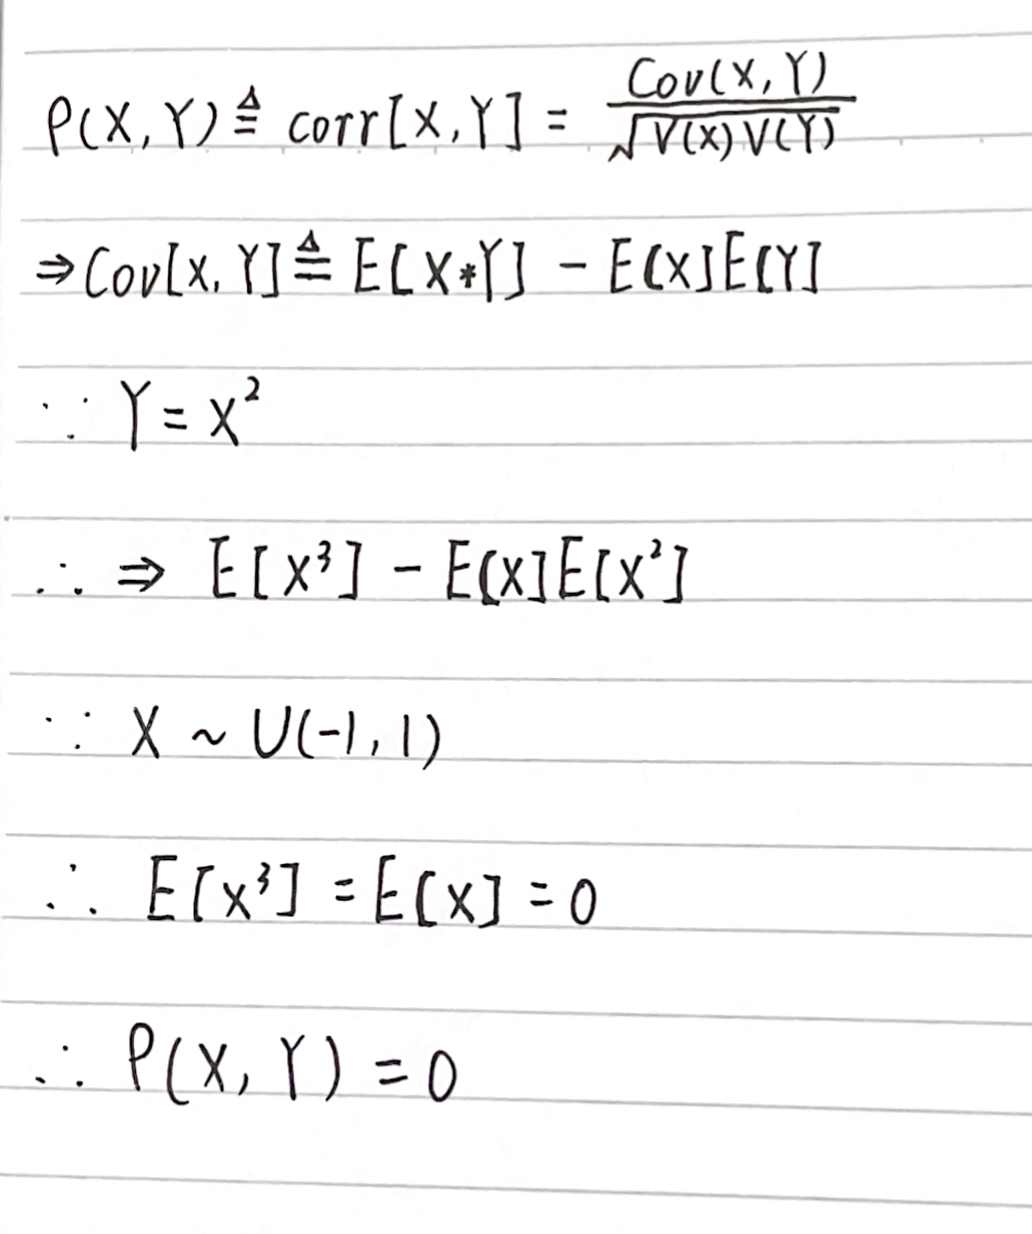 ρ(X, Y) ≜ corr[X, Y] = Cov(X, Y) / √V(X)V(Y)
⇒ Cov[X, Y] ≜ E[X*Y] - E[X]E[Y]
∵ Y = X²
∴ ⇒ E[X³] - E[X]E[X²]
∵ X ~ U(-1, 1)
∴ E[X³] = E[X] = 0
∴ ρ(X, Y) = 0